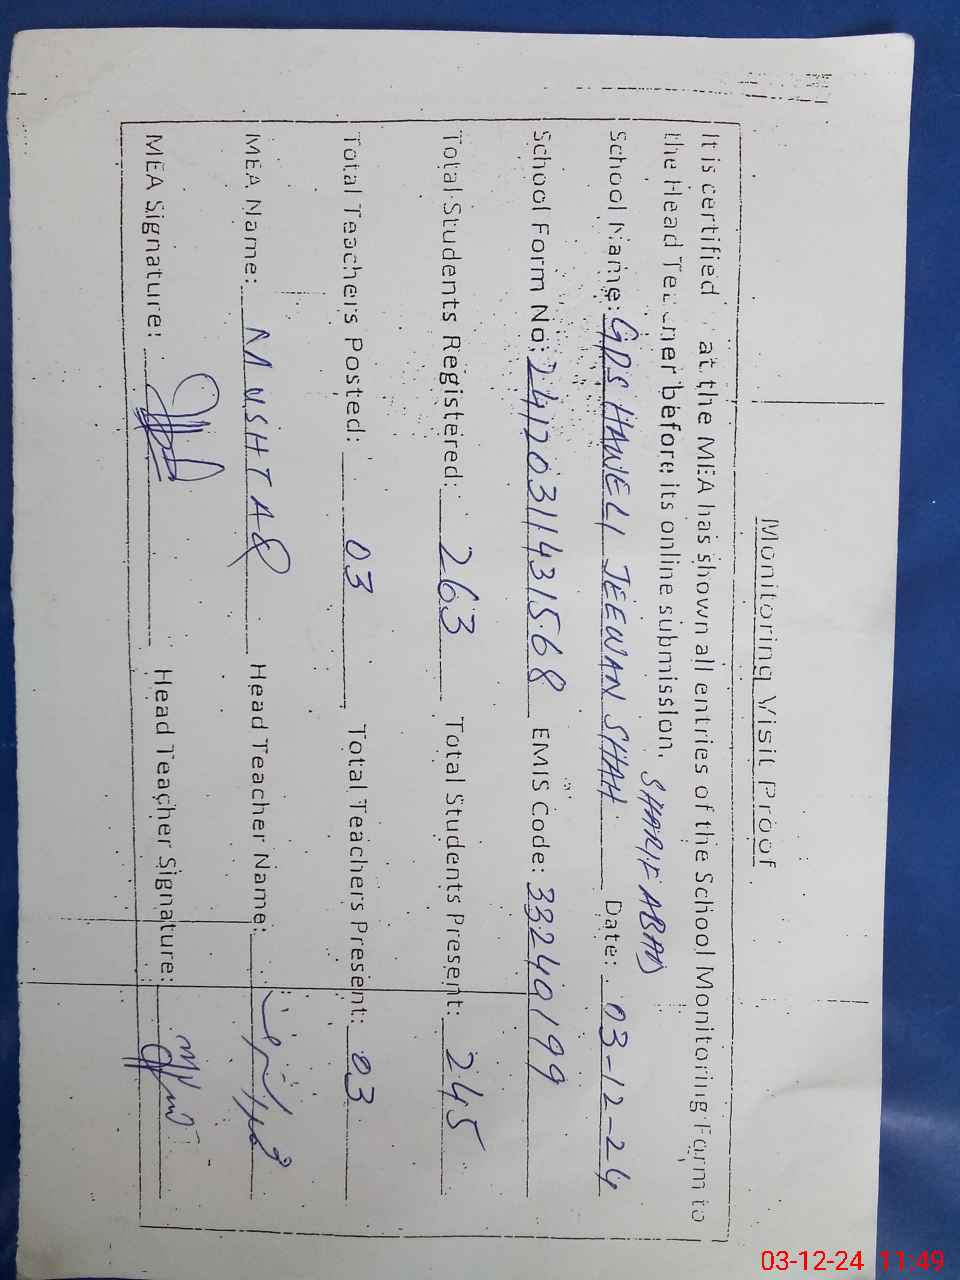 Monitoring Visit Proof
It is certified at the MEA has shown all entries of the School Monitoring Farm to
the Head Teacher before its online submission. SHARIF ABAD
School Name: GPS HAWELI JEEWAN SHAH Date: 03-12-24
School Form No: 2412031143 1568 EMIS Code: 33240199
Total Students Registered: 263 Total Students Present: 245
Total Teachers Posted: 03 Total Teachers Present: 03
MEA Name: MUSHTAQ Head Teacher Name:
MEA Signature: Head Teacher Signature:
03-12-24 11:49